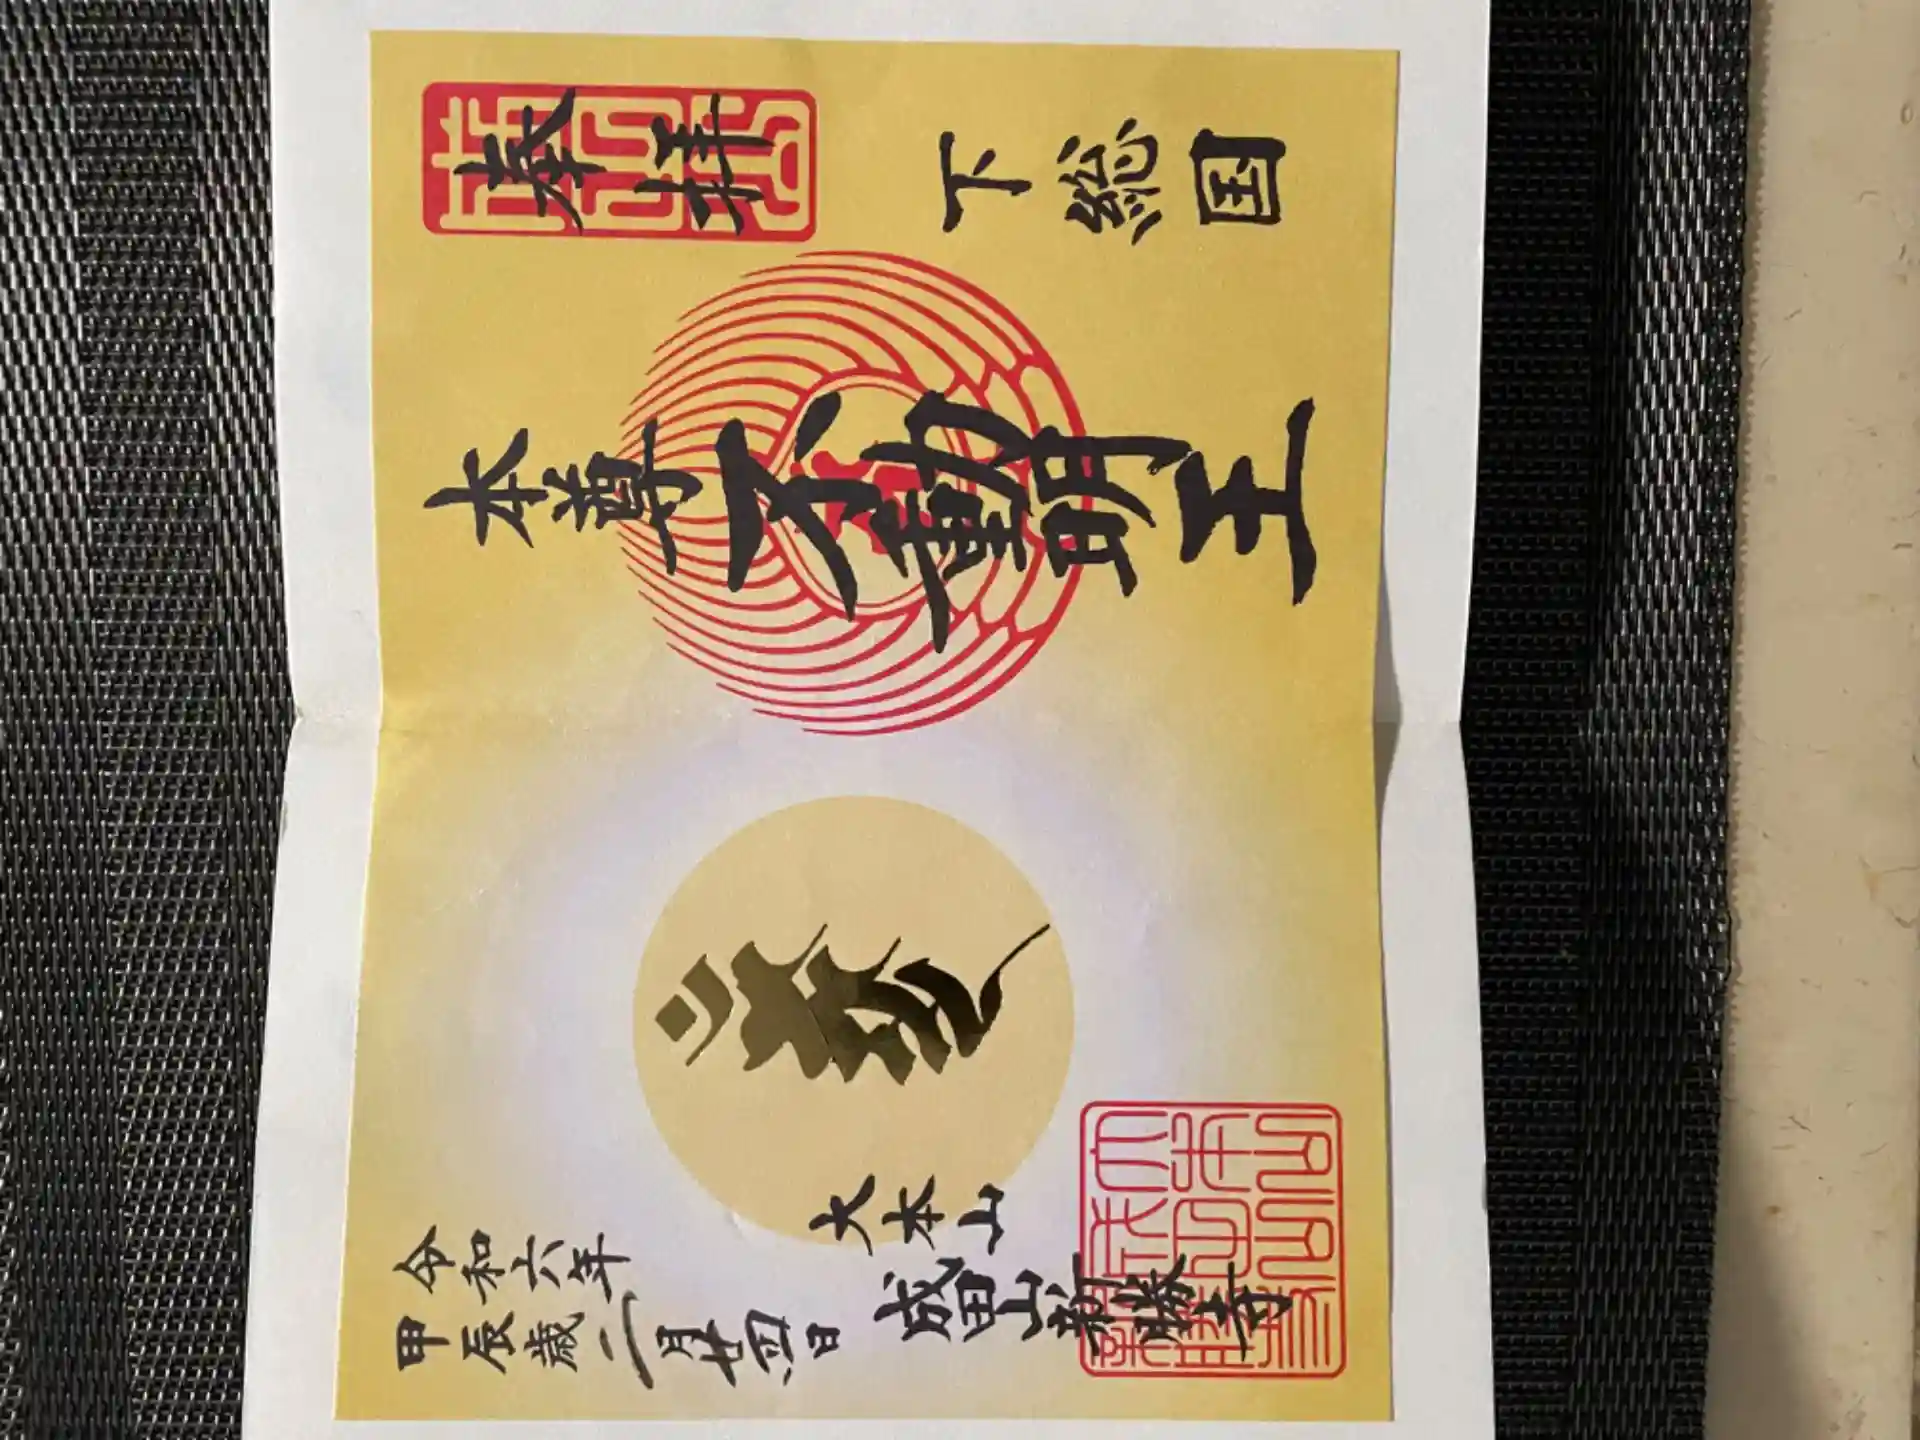 奉拝
下総国
本尊 不動明王
大本山
成田山新勝寺
令和六年
甲辰歳二月廿四日